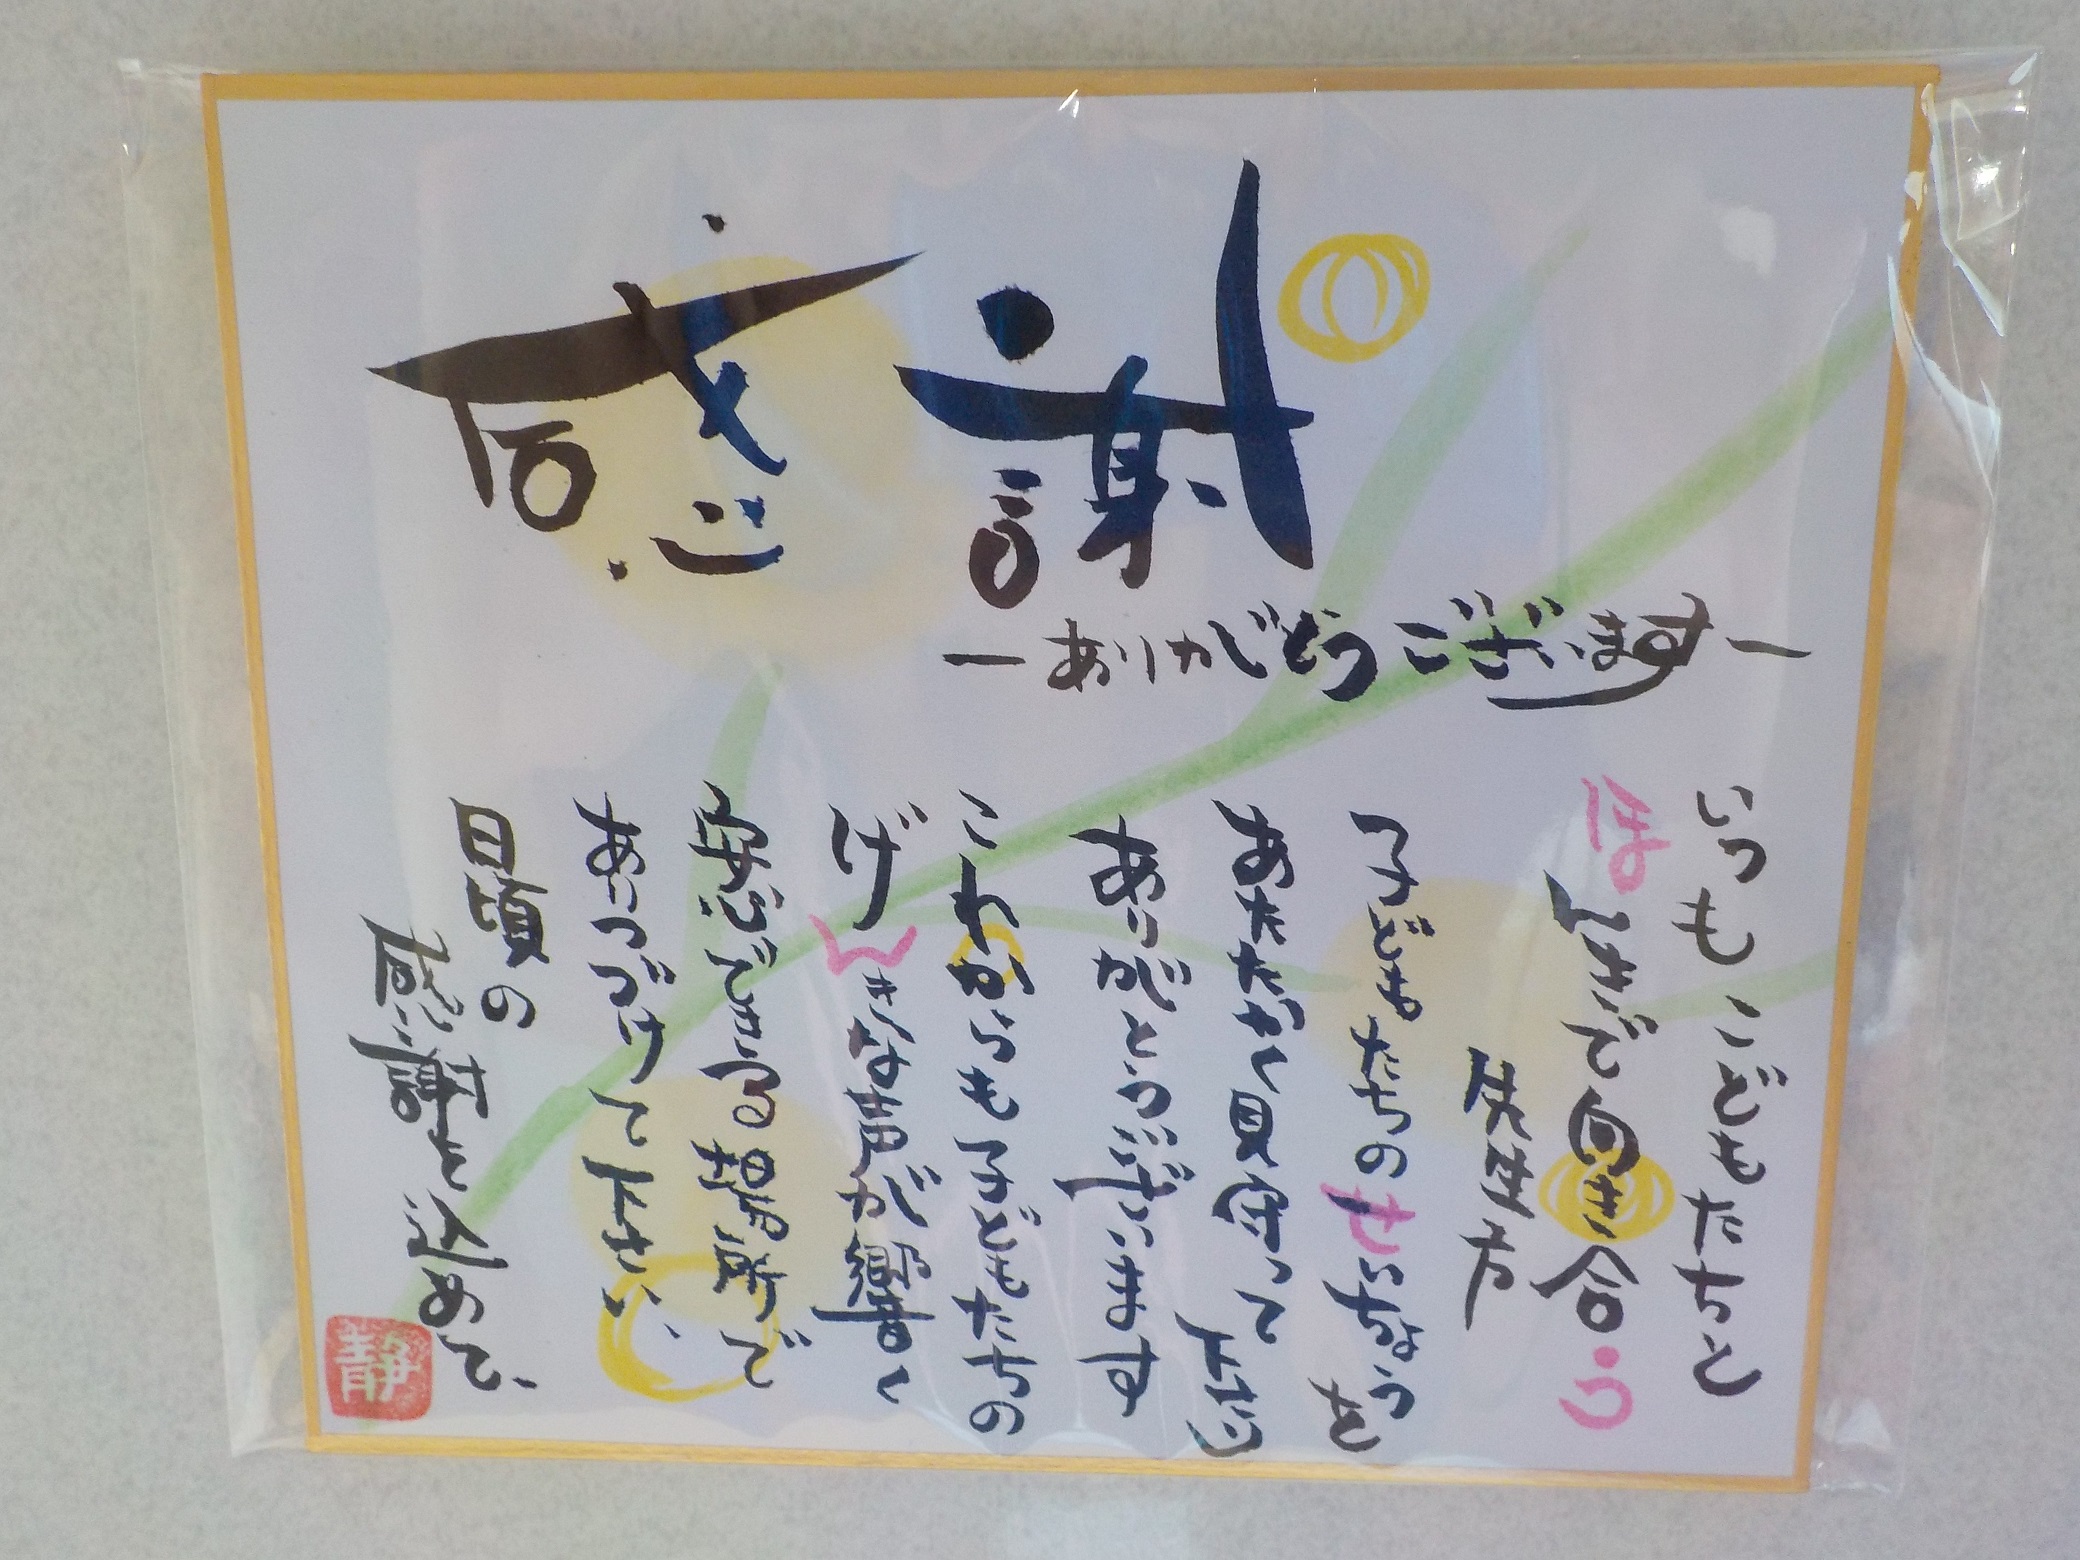 感謝
ーありがとうございますー
いつもこどもたちと
ほんきで向き合う
先生方
子どもたちのせいちょうを
あたたかく見守って下さり
ありがとうございます
これからも子どもたちの
げんきな声が響く
安心できる場所で
ありつづけて下さい、
日頃の
感謝を込めて、
静